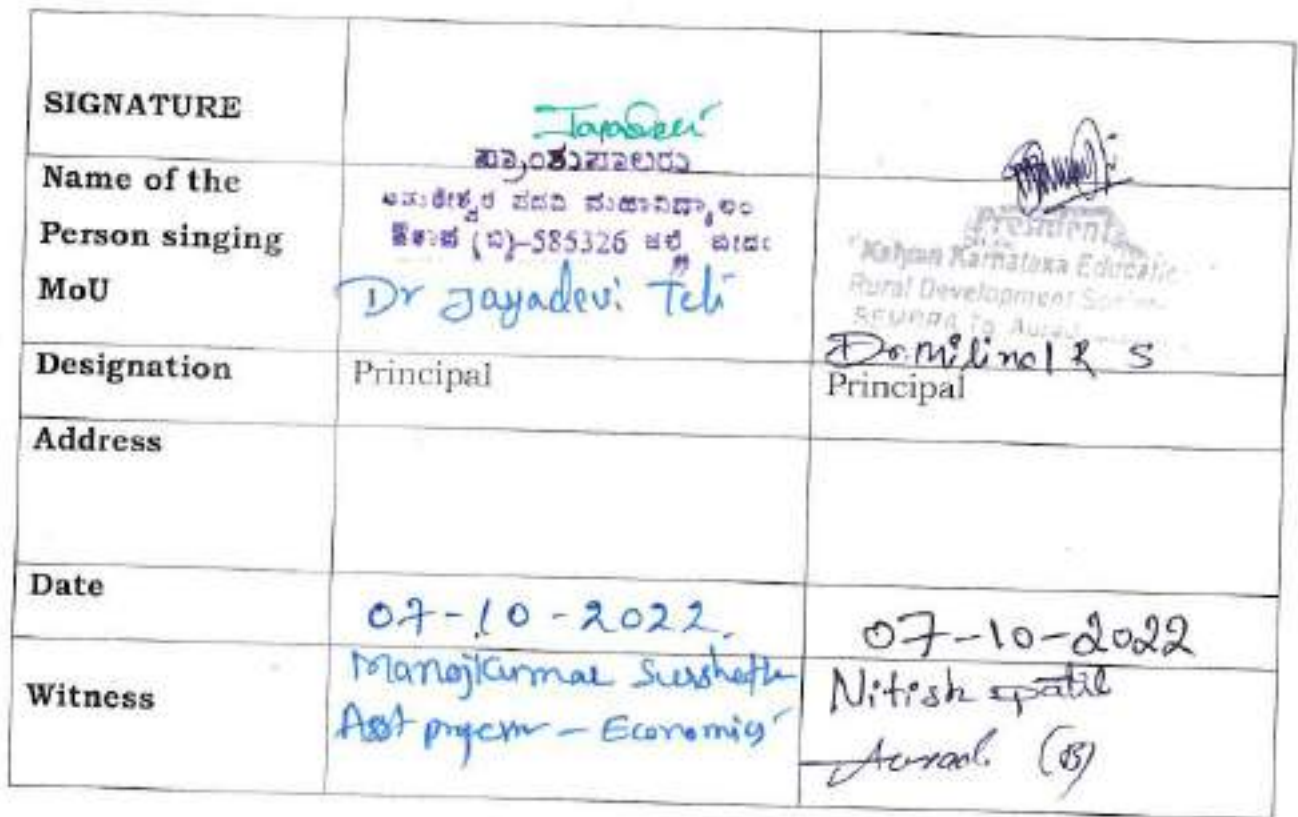 SIGNATURE
Jayadevi
ಪ್ರಾಂಶುಪಾಲರು
Name of the
Person singing
MoU
ಪದವಿ ಮಹಾವಿದ್ಯಾಲಯ
(ಬಿ)-585326
Dr Jayadevi Teli
President
Kalyan Karnataka Educatio
Rural Development
Dr. Milind R S
Designation
Principal
Principal
Address
Date
07-10-2022
07-10-2022
Witness
Manojkumar
Asst - Economics
Nitish patil
Aurad (B)